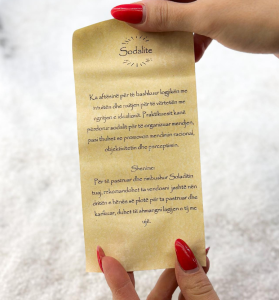 Sodalite
Ka aftësinë për të bashkuar logjikën me
intuitën dhe nxitjen për të vërtetën me
ngritjen e idealizmit. Praktikuesit kanë
përdorur sodalit për të organizuar mendjen,
pasi thuhet se posedon mendimin racional,
objektivitetin dhe perceptimin.
Shënime:
Për të pastruar dhe mbushur Sodalitin
tuaj, rekomandohet ta vendosni jashtë nën
dritën e hënës së plotë për ta pastruar dhe
karikuar, duhet të shmangni lagjen e tij me
ujë.